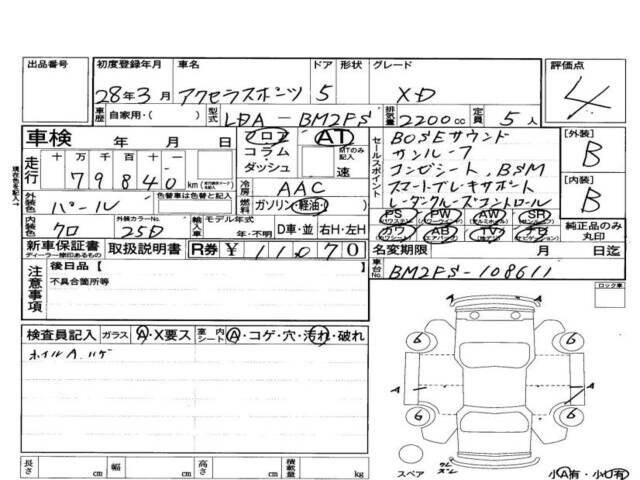 出品番号 初度登録年月 車名 ドア 形状 グレード 評価点
28年3月 アクセラスポーツ 5 XD 4
車歴 自家用・( ) 型式 LDA-BM2FS 排気量 2200cc 定員 5人
車検 年 月 日 フロア AT セールスポイント BOSEサウンド [外装]
走行 十 万 千 百 十 一 コラム・ダッシュ 速 サンルーフ B
79840 km 冷房 AAC コンビシート、BSM [内装]
外装色 パール 色替車は色替と記入 燃料 ガソリン・軽油・( ) スマートブレーキサポート B
レーダクルーズコントロール
内装色 クロ 外装カラーNo. 25D 輸入車 モデル年式 年・不明 D車・並 右H・左H PS PW AW SR 純正品のみ丸印
カワ AB TV ナビ
新車保証書 取扱説明書 R券 ¥ 11070 名変期限 月 日迄
ディーラー捺印あるもの
注意事項 後日品【 】 車台No. BM2FS-108611
不具合箇所等 ロック車
検査員記入 ガラス A・X要ス 室内シート A・コゲ・穴・汚れ・破れ
ホイルA、ハゲ
6 6
A A
6 6
長さ cm 幅 cm 高さ cm 積載量 kg
スペア 小A有・小U有